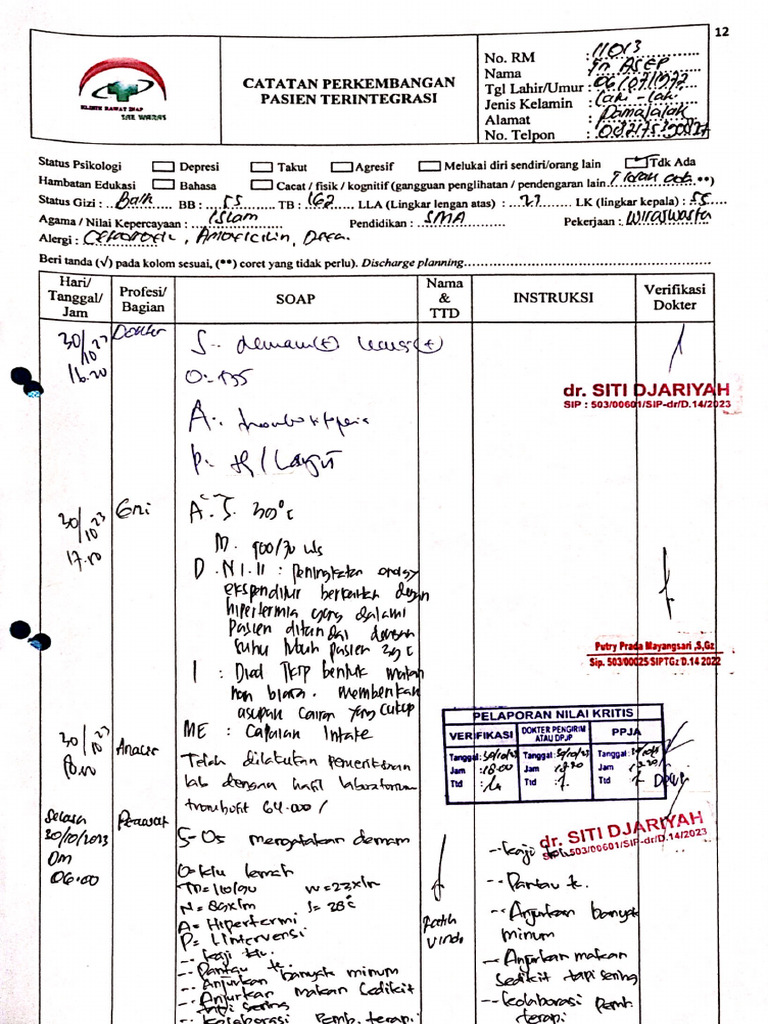 12
KLINIK RAWAT INAP
SAE WARAS
CATATAN PERKEMBANGAN
PASIEN TERINTEGRASI
No. RM : 11013
Nama : Tn ASEP
Tgl Lahir/Umur :
Jenis Kelamin : Laki-laki
Alamat :
No. Telpon :
Status Psikologi Depresi Takut Agresif Melukai diri sendiri/orang lain Tdk Ada
Hambatan Edukasi Bahasa Cacat / fisik / kognitif (gangguan penglihatan / pendengaran lain Tidak ada **)
Status Gizi : Baik BB : 55 TB : 162 LLA (Lingkar lengan atas) : 27 LK (lingkar kepala) : 55
Agama / Nilai Kepercayaan : Islam Pendidikan : SMA Pekerjaan : Wiraswasta
Alergi :
Beri tanda (√) pada kolom sesuai, (**) coret yang tidak perlu). Discharge planning
Hari/
Tanggal/
Jam
Profesi/
Bagian
SOAP
Nama
&
TTD
INSTRUKSI
Verifikasi
Dokter
30/10 23
16.20
Dokter
S : demam (+)
O :
A : trombositopenia
P :
dr. SITI DJARIYAH
SIP : 503/00601/SIP-dr/D.14/2023
30/10 23
17.00
Gizi
A. S. 39°c
M.
D. NI.1.1 : peningkatan energy
ekspenditur berkaitan dengan
hipertermia yang dialami
pasien ditandai dengan
suhu tubuh pasien 39°c
I : Diet TKTP bentuk makanan
biasa. memberikan
asupan cairan yang cukup
ME : Capaian Intake
Putry Prada Mayangsari ,S,Gz
Sip. 503/00025/SIPTGz/D.14 2022
30/10 23
18.00
Telah dilakukan pemeriksaan
lab dengan hasil laboratorium
trombosit 64.000 /
PELAPORAN NILAI KRITIS
VERIFIKASI
DOKTER PENGIRIM
ATAU DPJP
PPJA
Tanggal : 30/10/23
Jam : 18.00
Ttd :
Tanggal : 30/10/23
Jam
Ttd :
Tanggal :
Jam
Ttd
dr. SITI DJARIYAH
SIP : 503/00601/SIP-dr/D.14/2023
Selasa
30/10/2023
Jam
06.00
Perawat
S = Os mengatakan demam
O = klu lemah
TD = 110/90
N = 89x/m S = 38°c
A = Hipertermi
P = Lintervensi
- kaji ku.
- Pantau
- Anjurkan banyak minum
- Anjurkan makan sedikit
tapi sering
- kolaborasi pemb. terapi
- kaji
- Pantau
- Anjurkan banyak
minum
- Anjurkan makan
sedikit tapi sering
- kolaborasi pemb.
terapi